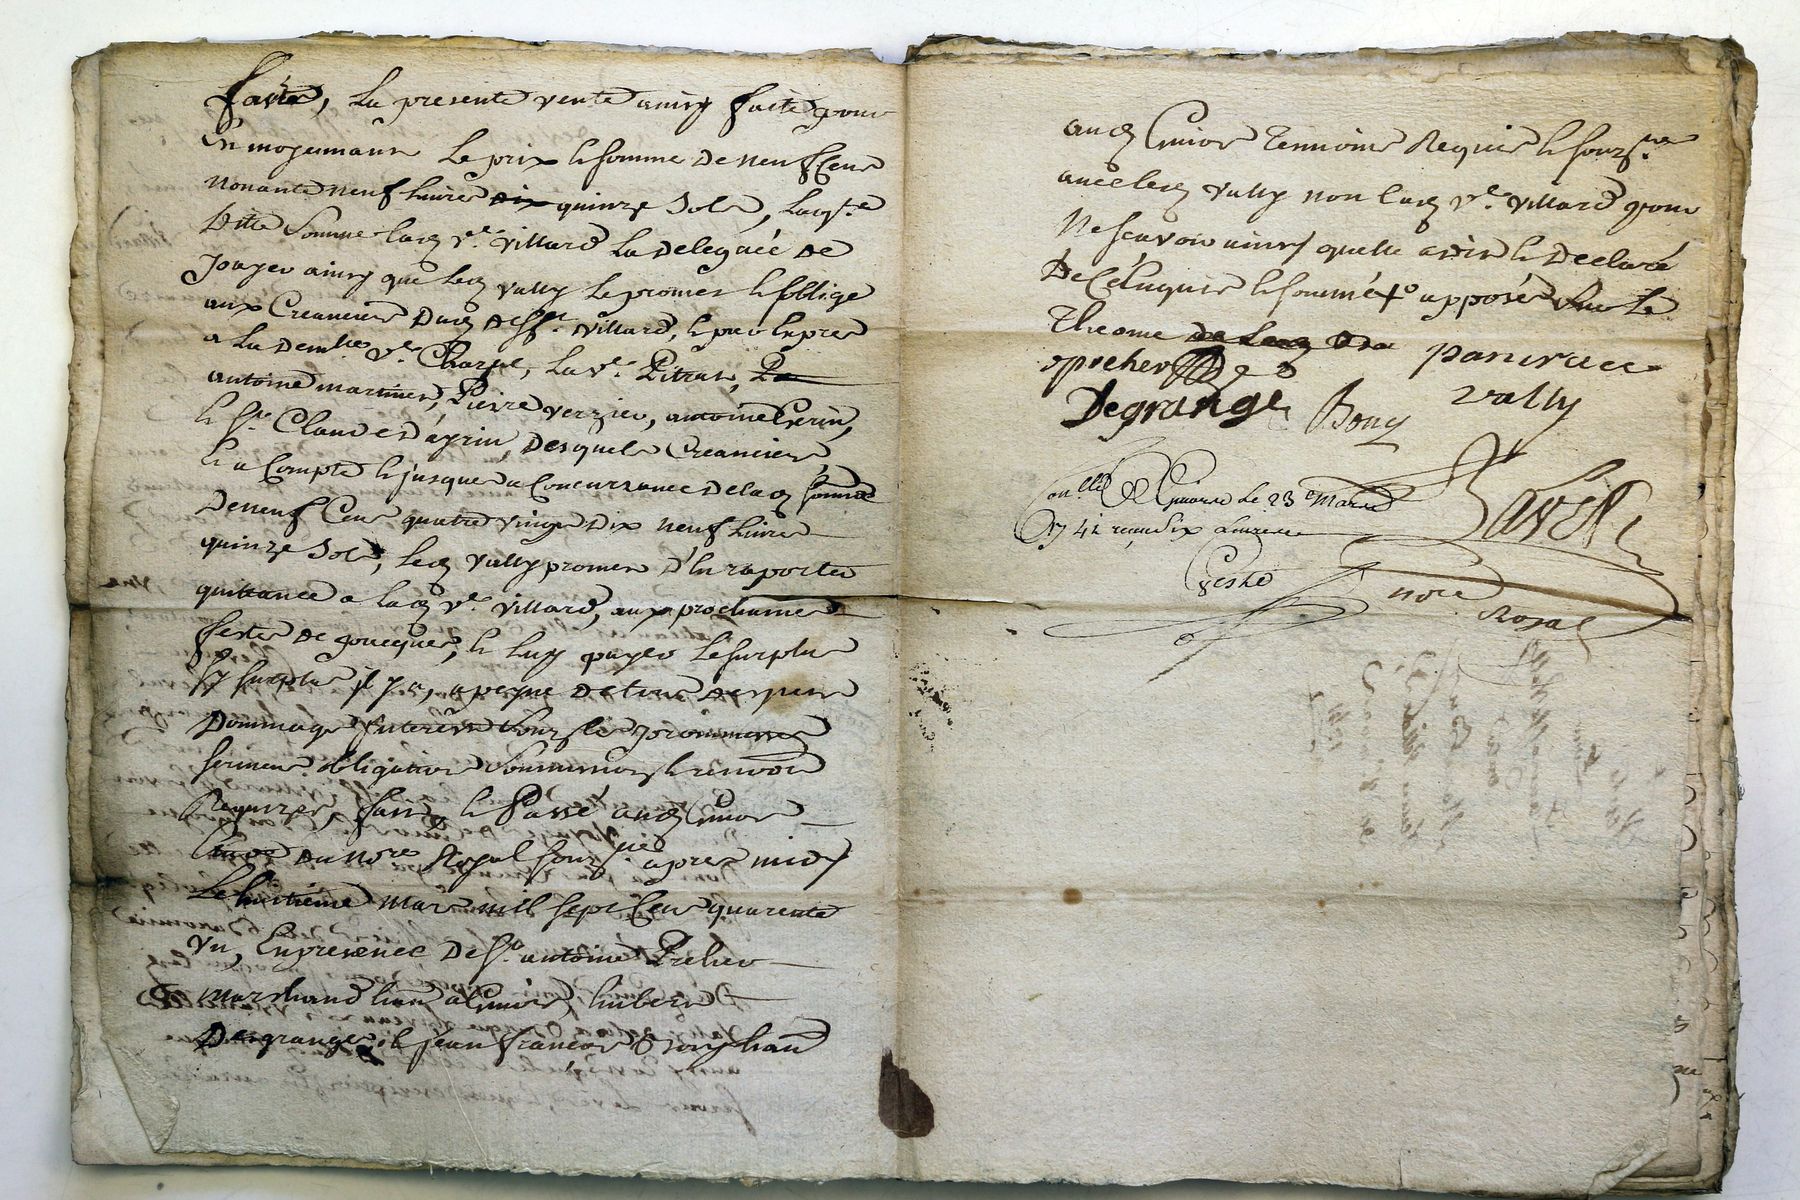 faite, La presente vente ainsy faite pour
Et moyennant le prix & somme de neuf Cent
nonante neuf livres dix quinze sols, laqle
ditte somme lad ve villard la deleguée de
payer ainsy que led vally le promet & soblige
aux Creanciers dud defft villard, & par exprès
a la demlle ve Charpe, la ve Pitrat, Pa
antoine martiner, Pierre verzier, antoine Perrin,
& sr Claude dayrin, desquels Creanciers
& a Compte & jusques a Concurrance de lad somme
de neuf Cent quatre vingt dix neuf livres
quinze sols, led vally promet d'en raporter
quittance a lad ve villard, aux prochaines
festes de paucques, & luy payer le surplus
sy surplus il y a, a peyne de tous despens
dommages Interests sous les promesses
serment obligations soumissions & renvois
Requises, fait & Passé aud Cuivor
du nore Royal souzsigné apres midy
Le huitième mars mil sept Cent quarente
un, En presence de sr antoine Preher
marchand han a Cuivor, hubert
Degrange, & jean francois Bony han
aud Cuivor temoins Requis & souzsnés
avec led vally non lad ve villard pour
ne scavoir ainsy quelle a dit & declaré
de Ce Enquise & sommée apposés sur le
de lad
preher panrace
Degrange Bony vally
Conllé a Cuivor le 23e mars
1741 reçu six livres
Savet
nore Royal